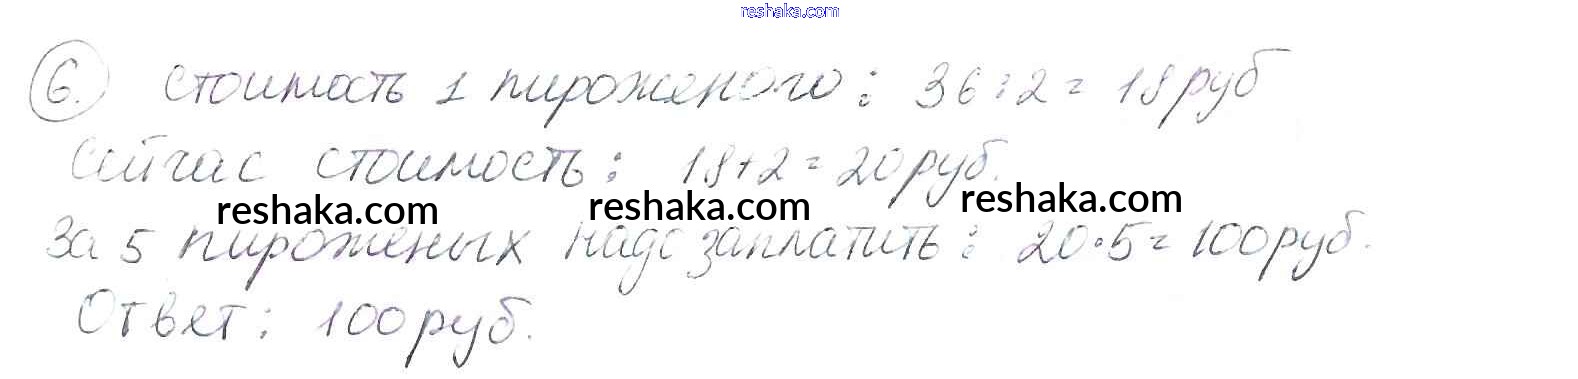 reshaka.com
6. стоимость 1 пироженого: 36:2= 18 руб
Сейчас стоимость: 18+2=20 руб.
reshaka.com reshaka.com reshaka.com
За 5 пироженых надо заплатить: 20·5= 100 руб.
Ответ: 100 руб.